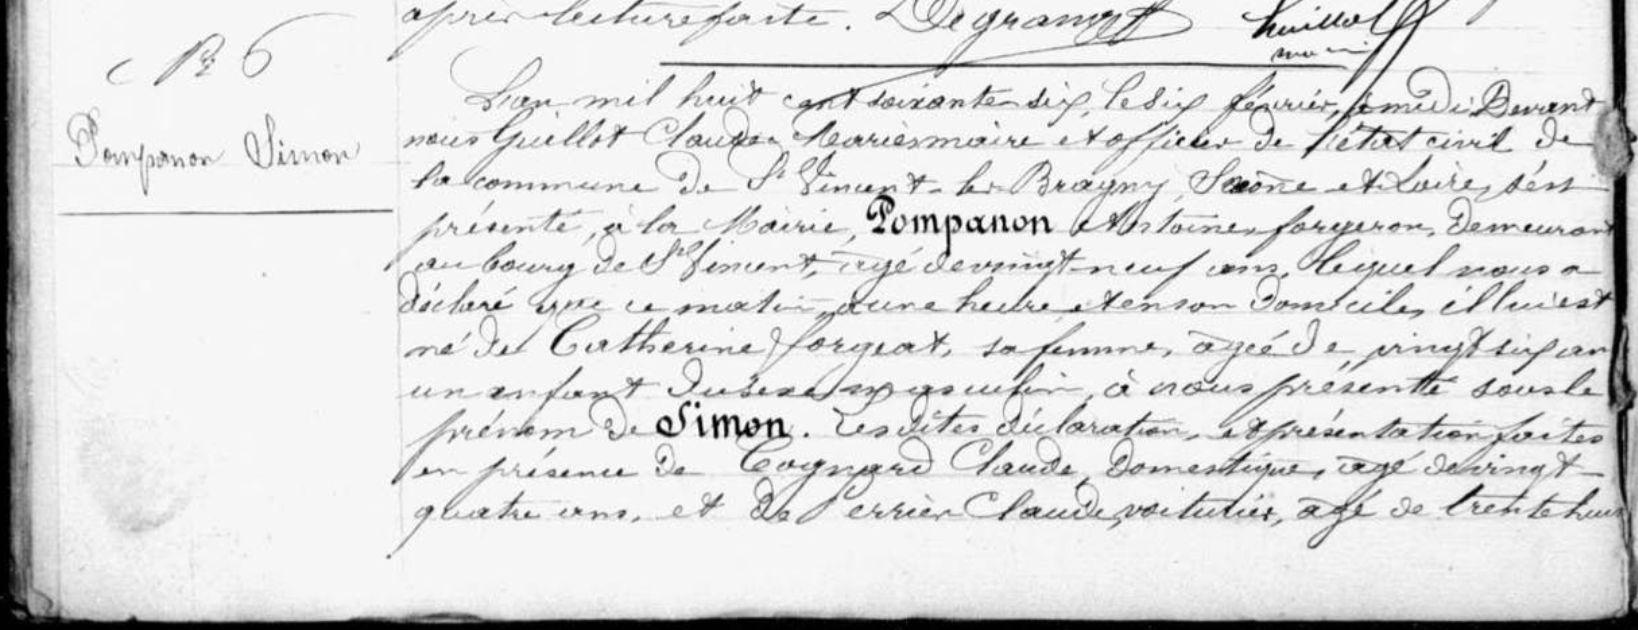 après lecture faite. Degrange Guillot
maire
N° 6
Pompanon Simon
L'an mil huit cent soixante six, le six février, à midi Devant
nous Guillot Claude Marie maire et officier de l'état civil de
la commune de St Vincent-les-Bragny, Saône et Loire, s'est
présenté, à la Mairie, Pompanon Antoine, forgeron, demeurant
au bourg de St Vincent, âgé de vingt-neuf ans, lequel nous a
déclaré que ce matin, à une heure et en son domicile, il lui est
né de Catherine Forgeat, sa femme, âgée de vingt six an
un enfant du sexe masculin, à nous présenté sous le
prénom de Simon. Lesdites déclaration et présentation faites
en présence de Cognard Claude, domestique, âgé de vingt-
quatre ans, et de Perrier Claude, voiturier, âgé de trente huit